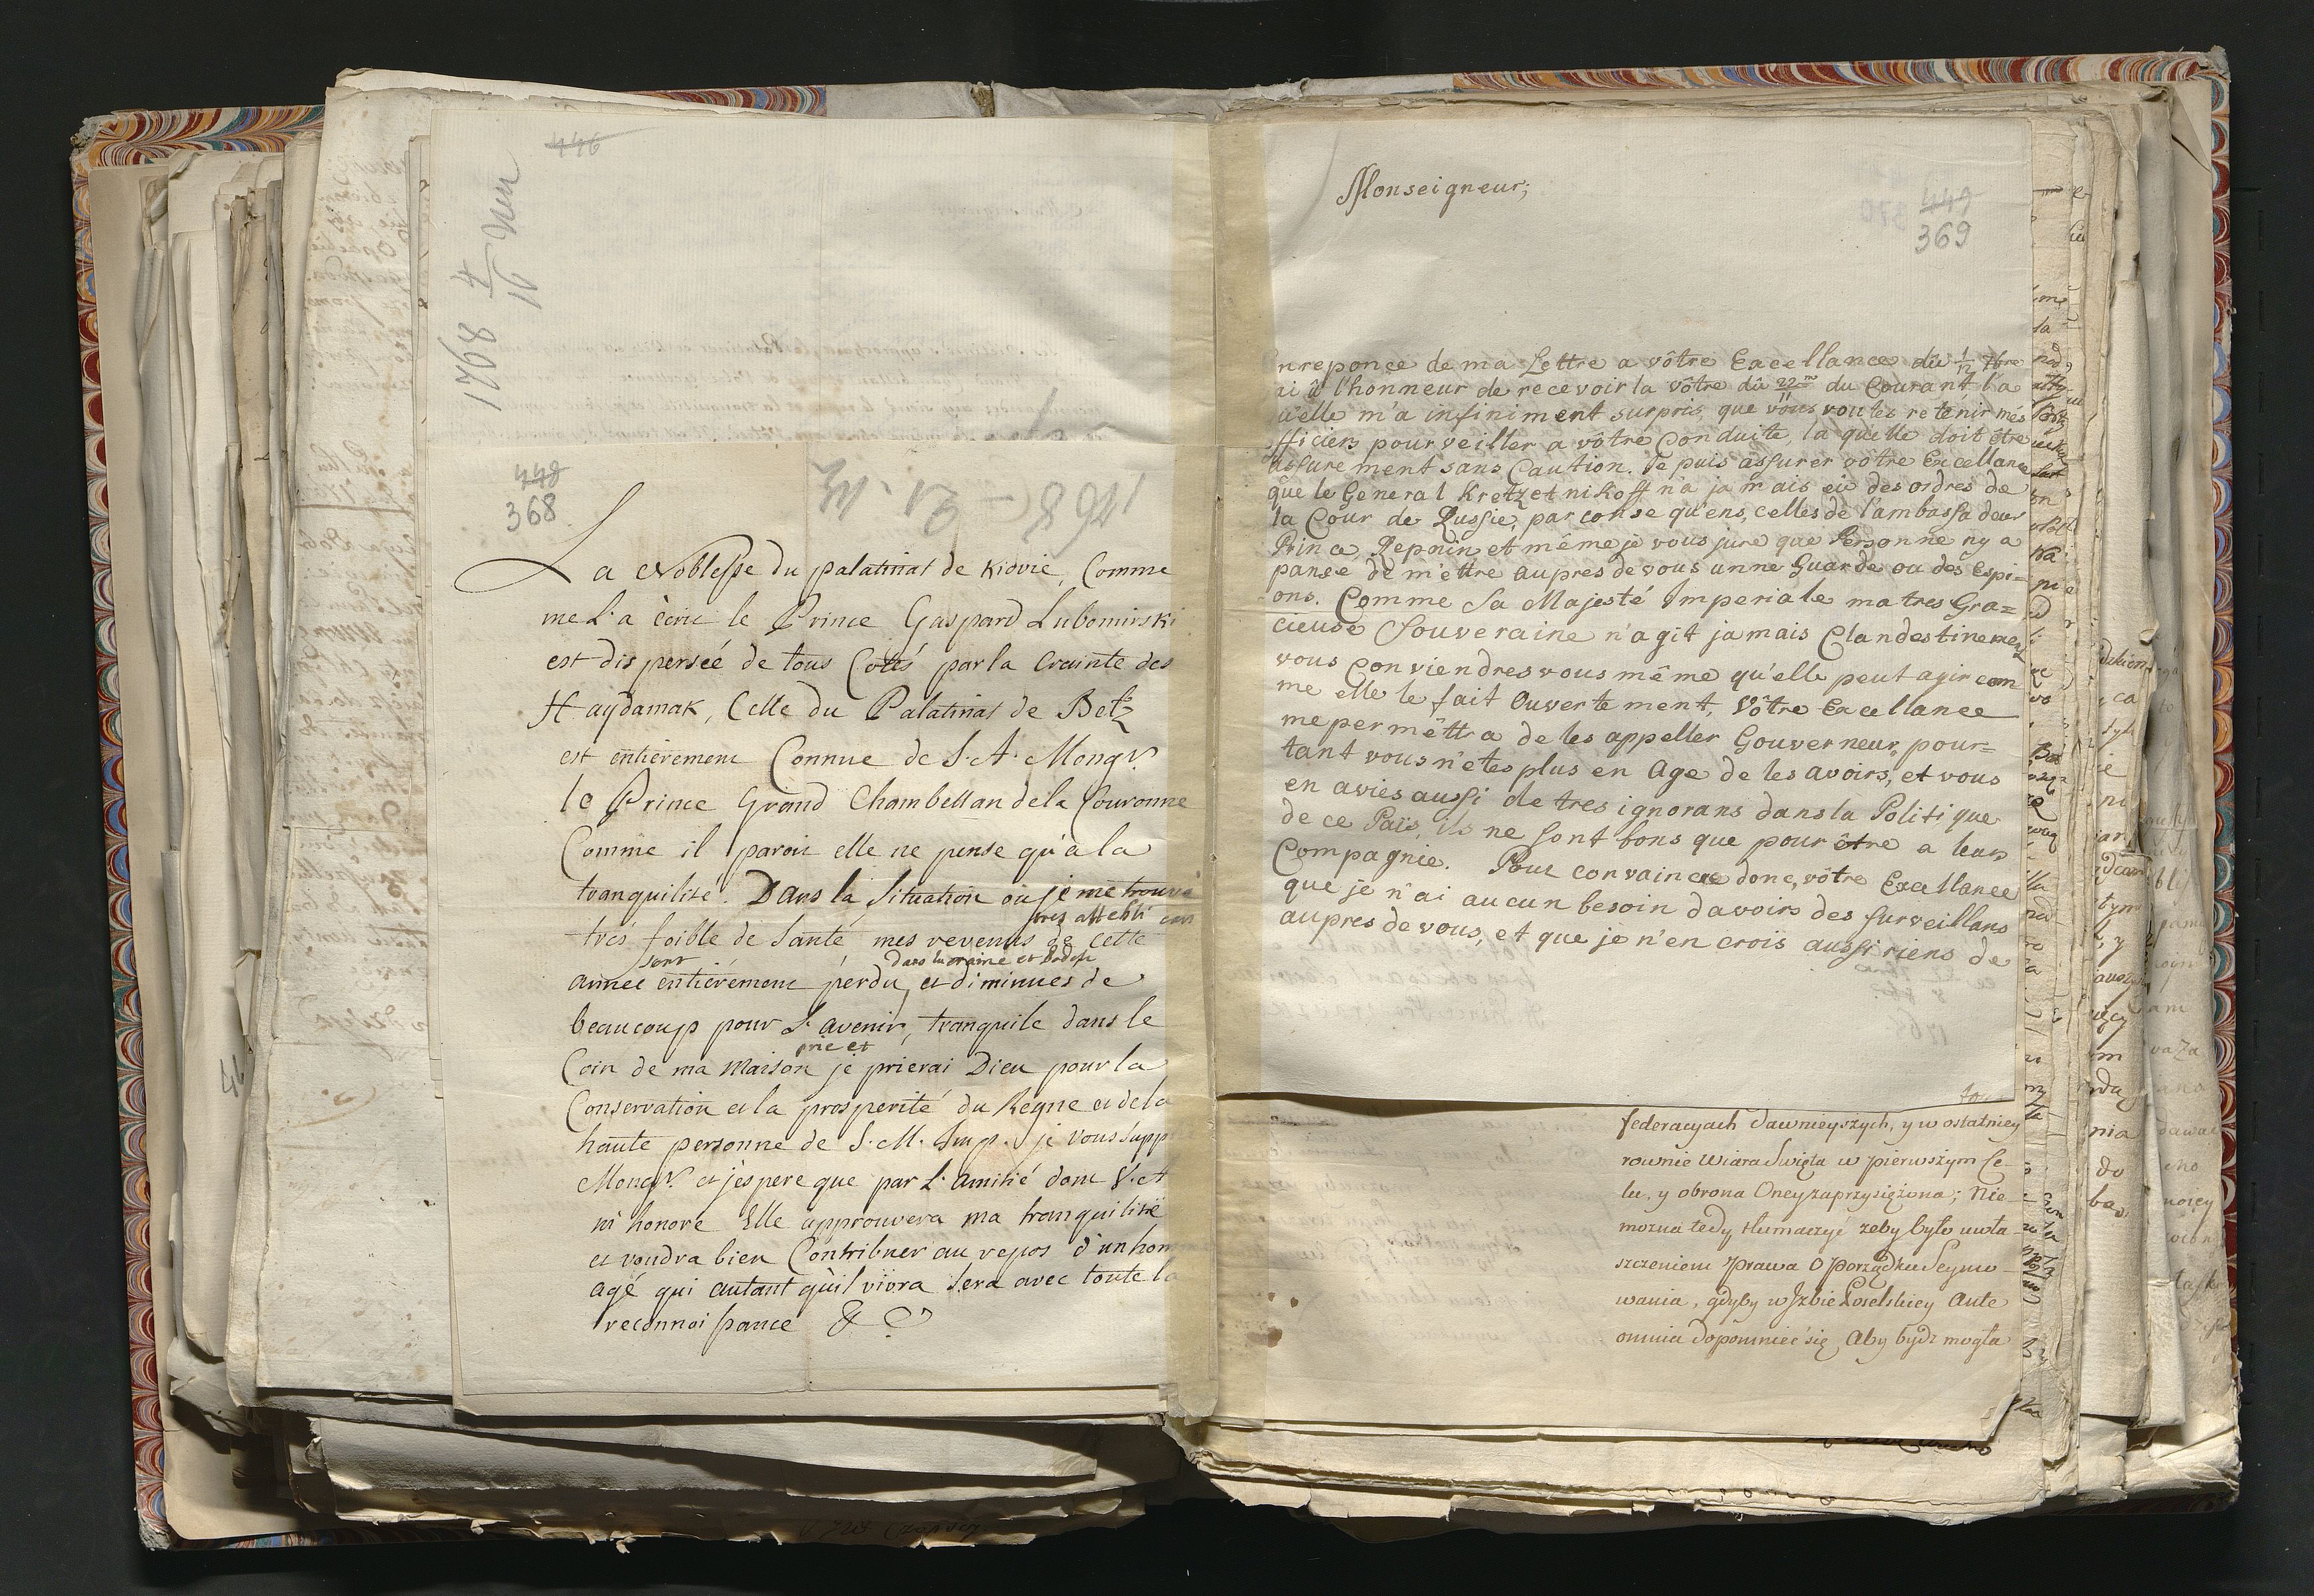 446
1768
448
368
La Noblesse du palatinat de Kiovie, Comme
me L'a ècrit le Prince Gaspard Lubomirski
est dispersée de tous Cottés par la Crainte des
Haydamak, Celle du Palatinat de Betz
est entièrement Connue de S. A. Mongr.
le Prince Grand Chambellan de la Couronne
Comme il paroit elle ne pense qu'à la
tranquilité. Dans la Situation où je me trouve
tres affebli
trés foible de Santé mes revenus de cette
sont dans lucraine et Podoli
année entièrement perdu, et diminues de
beaucoup pour L'avenir, tranquile dans le
prie et
Coin de ma Maison je prierai Dieu pour la
Conservation et la prosperité du Regne et de la
haute personne de S. M. Imp. je vous supp
Mongr. et j'èspere que par L'amitié dont V. et
m'honore Elle approuvera ma tranquilité
et voudra bien Contribuer au repos d'un hom
agé qui autant qu'il vivra Sera avec toute la
reconnoissance &
Monseigneur;
449
369
nreponce de ma Lettre a vôtre Excellance du 1/12 7bre
ai û l'honneur de recevoir la vôtre dû 22 du Courant, la
u'elle m'a infiniment surpris, que vous voules retenir més
fficiers pour veiller a vôtre Conduite, la quelle doit être
assurement sans Caution. Je puis assurer vôtre Excellance
que le General Kretzetnikoff n'a jamais eû des ordres de
la Cour de Russie, par conse qu'ens, celles de l'ambassadeur
Prince Repnin et même je vous jure que Personne n'y a
panse de m'ettre aupres de vous unne Guarde ou des Espi=
ons. Comme Sa Majesté Imperiale ma tres Gra=
cieuse Souveraine n'agit jamais Clandestinement
vous Conviendres vous même qu'elle peut agir com
me elle le fait Ouvertement, Vôtre Excellance
me permêttra de les appeller Gouverneur, pour=
tant vous n'etes plus en Age de les avoirs, et vous
en aviés aussi de tres ignorans dans la Politique
de ce Païs, ils ne sont bons que pour être a leur
Compagnie. Pour convaincre donc, vôtre Excellance
que je n'ai aucun besoin d'avoirs des surveillans
aupres de vous, et que je n'en crois aussi riens de
federacyach dawnieyszych, y w ostatniey
rownie Wiara Swięta w pierwszym Ce-
lu, y obrona Oney zaprzysiężona; Nie
mozna tedy tłumaczyć zeby było uwła-
szczeniem Prawa o Porządku Seymo-
wania, gdyby w Jzbie Poselskiey Ante
omnia dopomnieć się, Aby bydz mogła